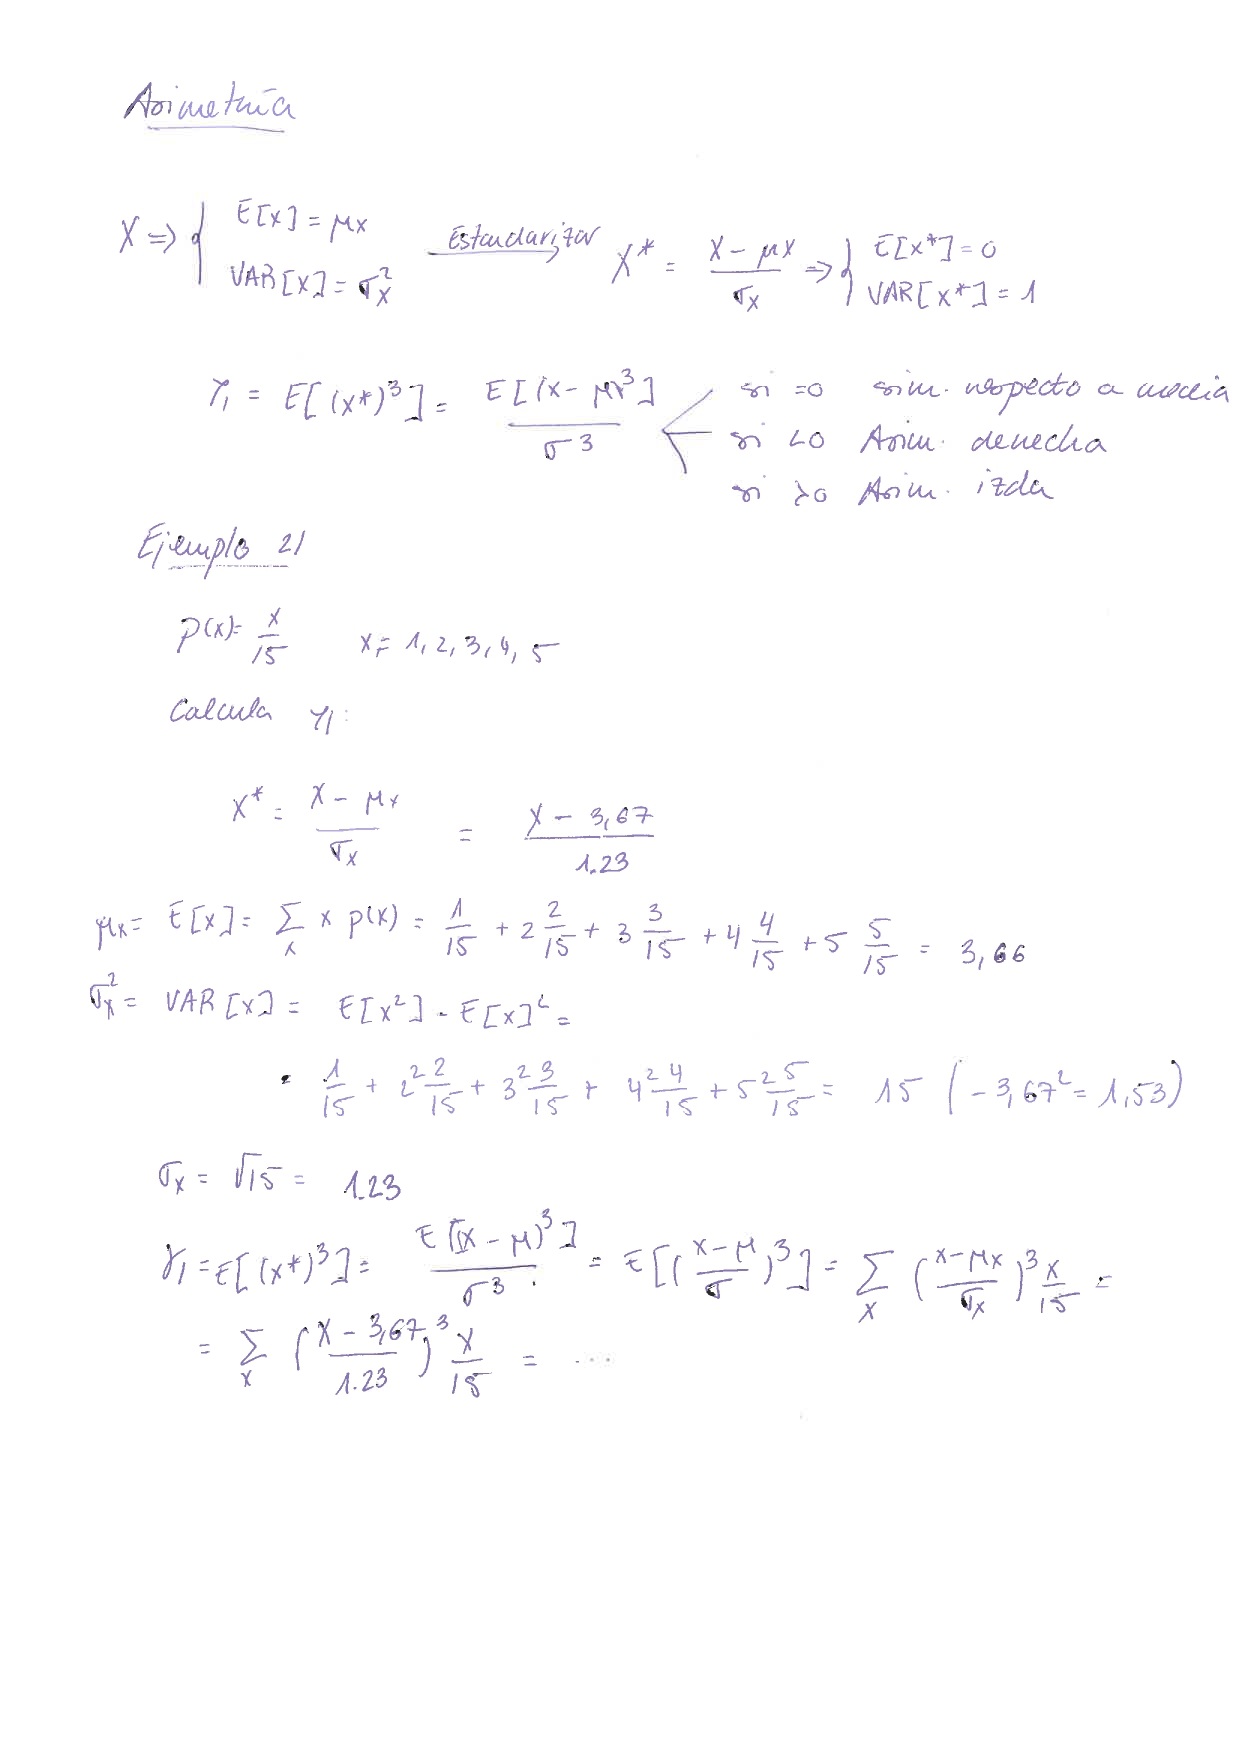 Asimetría
X ⇒ { E[x] = μx
VAR[X] = σx²
Estandarizar X* = (X - μx)/σx ⇒ { E[x*] = 0
VAR[x*] = 1
γ1 = E[(x*)³] = E[(x - μ)³]/σ³
si =0 sim. respecto a media
si <0 Asim. derecha
si >0 Asim. izda
Ejemplo 21
p(x) = x/15 x = 1, 2, 3, 4, 5
Calcula γ1:
X* = (X - μx)/σx = (X - 3,67)/1.23
μx = E[x] = Σx x p(x) = 1/15 + 2 2/15 + 3 3/15 + 4 4/15 + 5 5/15 = 3,66
σx² = VAR[x] = E[x²] - E[x]² =
= 1/15 + 2² 2/15 + 3² 3/15 + 4² 4/15 + 5² 5/15 = 15 (- 3,67² = 1,53)
σx = √15 = 1.23
γ1 = E[(x*)³] = E[(x - μ)³]/σ³ = E[((x-μ)/σ)³] = Σx ((x-μx)/σx)³ x/15 =
= Σx ((x - 3,67)/1.23)³ x/15 = ...